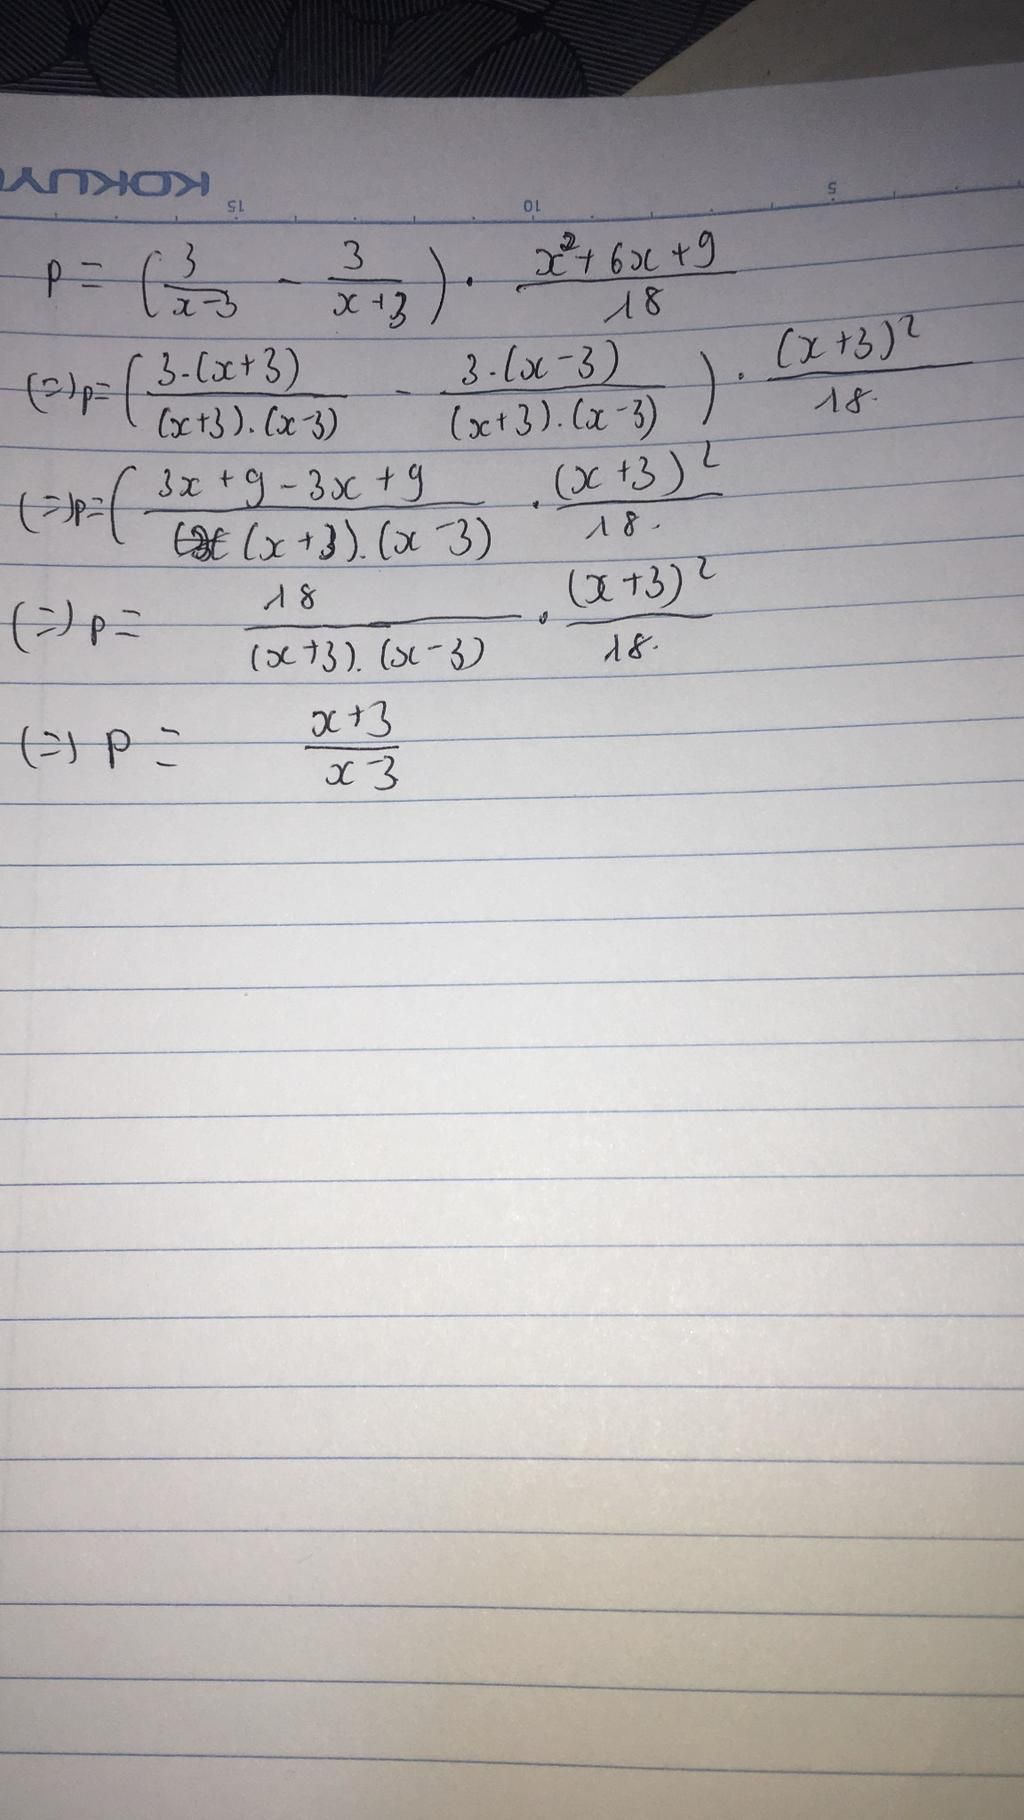 KOKUY
15 10 5
P = (3/(x-3) - 3/(x+3)) . (x²+6x+9)/18
(=)p=(3.(x+3)/((x+3).(x-3)) - 3.(x-3)/((x+3).(x-3))) . (x+3)²/18.
(=)p=((3x+9-3x+9)/((x+3).(x-3)) . (x+3)²/18.
(=) p= 18/((x+3).(x-3)) . (x+3)²/18.
(=) P = (x+3)/(x-3)